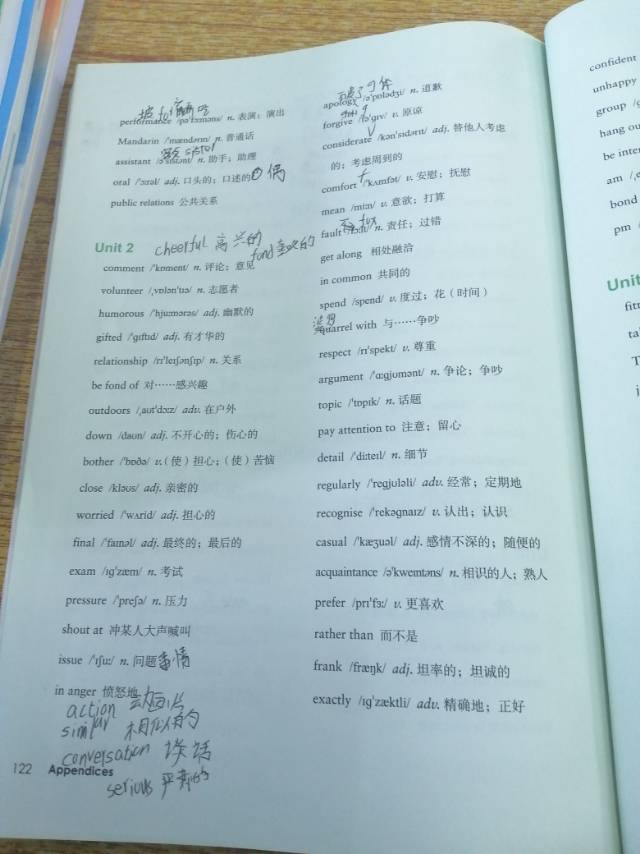 performance /pəˈfɔːməns/ n. 表演；演出
Mandarin /ˈmændərɪn/ n. 普通话
assistant /əˈsɪstənt/ n. 助手；助理
oral /ˈɔːrəl/ adj. 口头的；口述的
public relations 公共关系
Unit 2 cheerful 高兴的
comment /ˈkɒment/ n. 评论；意见
volunteer /ˌvɒlənˈtɪə/ n. 志愿者
humorous /ˈhjuːmərəs/ adj. 幽默的
gifted /ˈɡɪftɪd/ adj. 有才华的
relationship /rɪˈleɪʃənʃɪp/ n. 关系
be fond of 对……感兴趣
outdoors /ˌaʊtˈdɔːz/ adv. 在户外
down /daʊn/ adj. 不开心的；伤心的
bother /ˈbɒðə/ v.（使）担心；（使）苦恼
close /kləʊs/ adj. 亲密的
worried /ˈwʌrid/ adj. 担心的
final /ˈfaɪnəl/ adj. 最终的；最后的
exam /ɪɡˈzæm/ n. 考试
pressure /ˈpreʃə/ n. 压力
shout at 冲某人大声喊叫
issue /ˈɪʃuː/ n. 问题 事情
in anger 愤怒地
action 动画片
similar 相似的
conversation 谈话
serious 严肃的
122 Appendices
apology /əˈpɒlədʒi/ n. 道歉
forgive /fəˈɡɪv/ v. 原谅
considerate /kənˈsɪdərɪt/ adj. 替他人考虑
的；考虑周到的
comfort /ˈkʌmfət/ v. 安慰；抚慰
mean /miːn/ v. 意欲；打算
fault /fɔːlt/ n. 责任；过错
get along 相处融洽
in common 共同的
spend /spend/ v. 度过；花（时间）
quarrel with 与……争吵
respect /rɪˈspekt/ v. 尊重
argument /ˈɑːɡjʊmənt/ n. 争论；争吵
topic /ˈtɒpɪk/ n. 话题
pay attention to 注意；留心
detail /ˈdiːteɪl/ n. 细节
regularly /ˈreɡjʊləli/ adv. 经常；定期地
recognise /ˈrekəɡnaɪz/ v. 认出；认识
casual /ˈkæʒuəl/ adj. 感情不深的；随便的
acquaintance /əˈkweɪntəns/ n. 相识的人；熟人
prefer /prɪˈfɜː/ v. 更喜欢
rather than 而不是
frank /fræŋk/ adj. 坦率的；坦诚的
exactly /ɪɡˈzæktli/ adv. 精确地；正好
confident
unhappy
group
hang ou
be inte
am
bond
pm
Unit